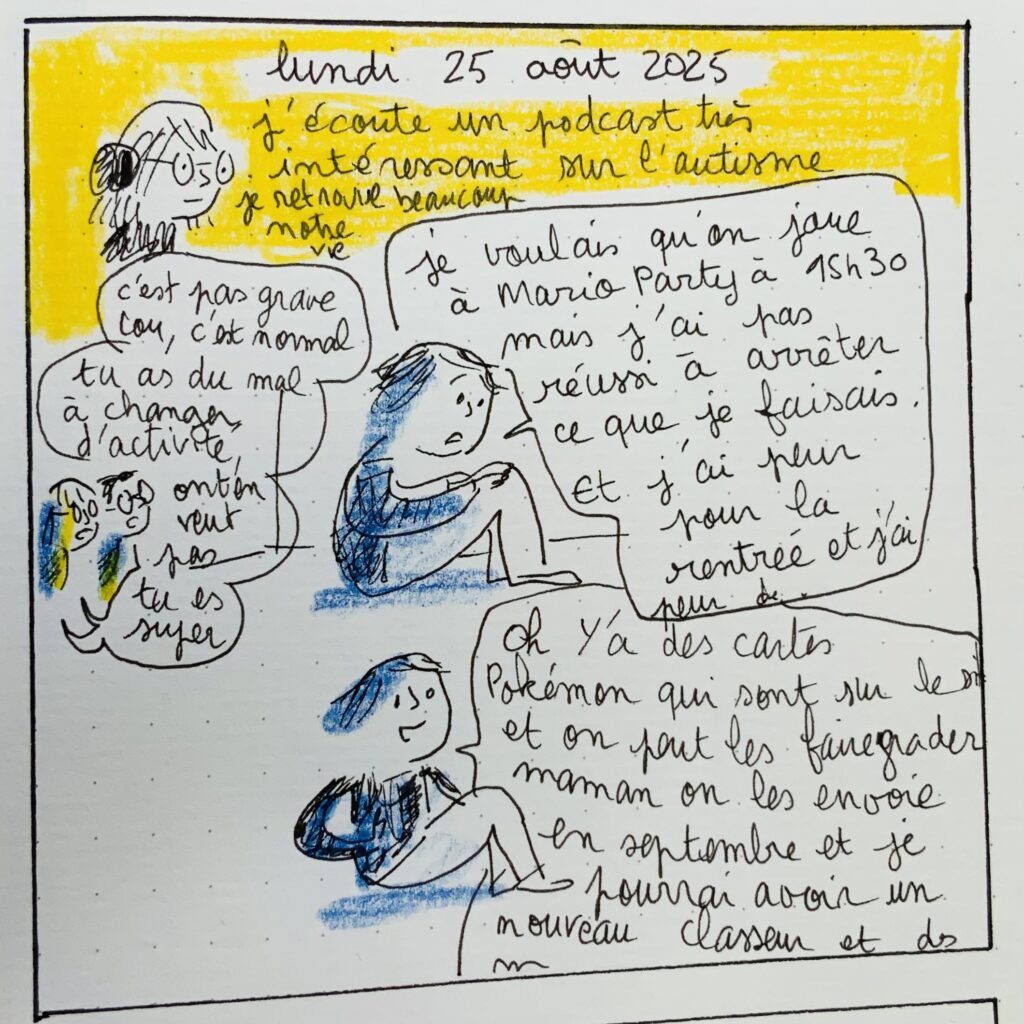 lundi 25 août 2025
j'écoute un podcast très
intéressant sur l'autisme
je retrouve beaucoup
notre
vie
je voulais qu'on joue
à Mario Party à 15h30
mais j'ai pas
réussi à arrêter
ce que je faisais.
Et j'ai peur
pour la
rentrée et j'ai
peur de..
c'est pas grave
Lou, c'est normal
tu as du mal
à changer
d'activité,
on t'en
veut
pas
tu es
super
Oh Y'a des cartes
Pokémon qui sont sur le
et on peut les faire grader
maman on les envoie
en septembre et je
pourrai avoir un
nouveau classeur et des